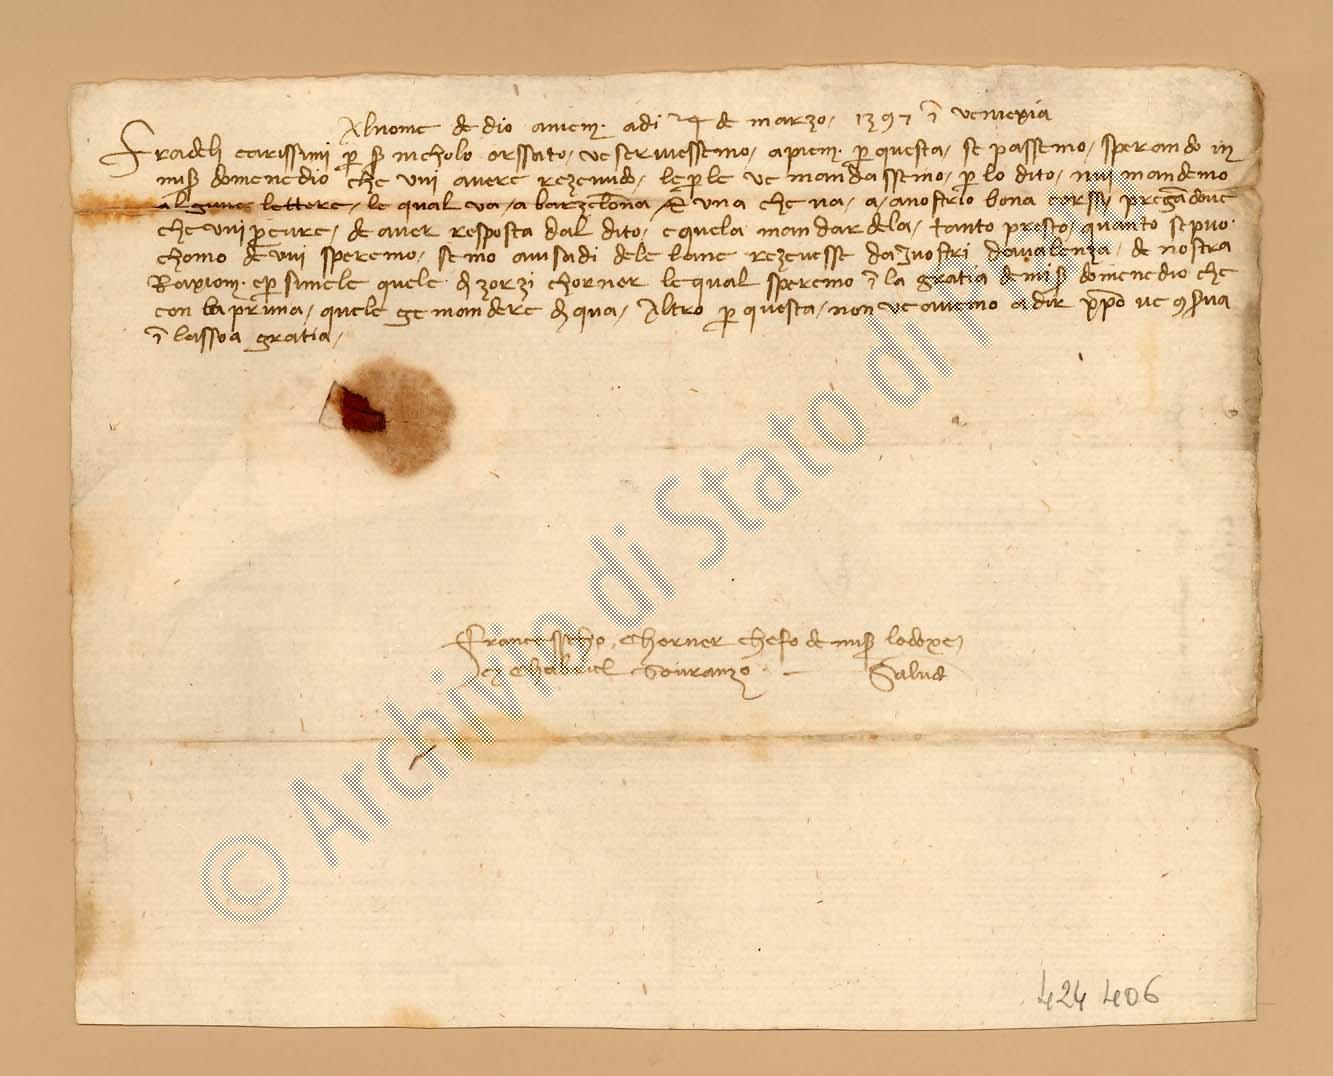 Al nome de dio amem. adi 24 de marzo. 1397 ī venexia
Fradeli carissimi p ser nicholo orssato, ve scrivessemo, apiem. p questa, se passemo, sperando in
mis domenedio che vui avere rezevudo, le perle ve mandassemo, p lo dito, nui mandemo
algune lettere, le qual va, a barzelona, una che va, a, anostrio bona corssy pregadove
che vui percure, de aver resposta dal dito, e quela mandardela, tanto presto, quanto se puo.
chomo de vui speremo, semo avisadi dele lane rezevesse dai vostri da valenza, de nostra
Raxiom. e p simele quele d zorzi chorner le qual speremo ī la gratia de mis domenedio che
con la prima, quele ge mandere d qua, Altro p questa, non ve avemo a dir xpo ve conserva
ī la ssoa gratia,
Francesscho, Chorner chefo de mis lodoxe,
ez Ghabriel Souranzo. Salude
424 406
© Archivio di Stato di P